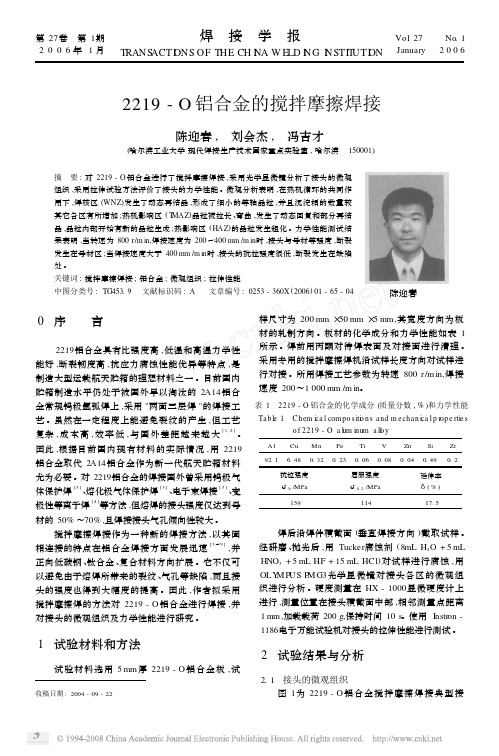 第27卷 第1期
2 0 0 6 年 1 月
焊 接 学 报
TRANSACTIONS OF THE CHINA WELDING INSTITUTION
Vol 27 No. 1
January 2 0 0 6
2219 - O 铝合金的搅拌摩擦焊接
陈迎春, 刘会杰, 冯吉才
(哈尔滨工业大学 现代焊接生产技术国家重点实验室, 哈尔滨 150001)
摘 要: 对 2219 - O铝合金进行了搅拌摩擦焊接,采用光学显微镜分析了接头的微观
组织,采用拉伸试验方法评价了接头的力学性能。微观分析表明,在热机循环的共同作
用下,焊核区 (WNZ)发生了动态再结晶,形成了细小的等轴晶粒,并且沉淀相的数量较
其它各区有所增加;热机影响区 (TMAZ)晶粒被拉长、弯曲,发生了动态回复和部分再结
晶,晶粒内部开始有新的晶粒生成;热影响区 (HAZ)的晶粒发生粗化。力学性能测试结
果表明,当转速为 800 r/min,焊接速度为 200～400 mm /min时,接头与母材等强度,断裂
发生在母材区;当焊接速度大于 400 mm /min时,接头的抗拉强度很低,断裂发生在缺陷
处。
关键词: 搅拌摩擦焊接; 铝合金; 微观组织; 拉伸性能
中图分类号: TG453. 9 文献标识码: A 文章编号: 0253 - 360X (2006) 01 - 65 - 04
陈迎春
0 序 言
2219铝合金具有比强度高,低温和高温力学性
能好,断裂韧度高,抗应力腐蚀性能优异等特点,是
制造大型运载航天贮箱的理想材料之一。目前国内
贮箱制造水平仍处于被国外早以淘汰的 2A14铝合
金常规钨极氩弧焊上,采用“两面三层焊”的焊接工
艺。虽然在一定程度上能避免裂纹的产生,但工艺
复杂,成本高,效率低,与国外差距越来越大[1,2]。
因此,根据目前国内现有材料的实际情况,用 2219
铝合金取代 2A14铝合金作为新一代航天贮箱材料
尤为必要。对 2219铝合金的焊接国外曾采用钨极气
体保护焊[3]、熔化极气体保护焊[3]、电子束焊接[3]、变
极性等离子焊[4]等方法,但熔焊的接头强度仅达到母
材的 50% ～70% ,且焊接接头气孔倾向性较大。
搅拌摩擦焊接作为一种新的焊接方法,以其固
相连接的特点在铝合金焊接方面发展迅速[5～9],并
正向低碳钢、钛合金、复合材料方向扩展。它不仅可
以避免由于熔焊所带来的裂纹、气孔等缺陷,而且接
头的强度也得到大幅度的提高。因此,作者拟采用
搅拌摩擦焊的方法对 2219 - O铝合金进行焊接,并
对接头的微观组织及力学性能进行研究。
1 试验材料和方法
试验材料选用 5 mm厚 2219 - O铝合金板,试
收稿日期: 2004 - 09 - 22
样尺寸为 200 mm ×50 mm ×5 mm,其宽度方向为板
材的轧制方向。板材的化学成分和力学性能如表 1
所示。焊前用丙酮对待焊表面及对接面进行清理。
采用专用的搅拌摩擦焊机沿试样长度方向对试样进
行对接。所用焊接工艺参数为转速 800 r/min,焊接
速度 200～1 000 mm /min。
表 1 2219 - O铝合金的化学成分 (质量分数 , % )和力学性能
Table 1 Chemical compositions and mechanical properties
of 2219 - O aluminum alloy
Al Cu Mn Fe Ti V Zn Si Zr
92. 1 6. 48 0. 32 0. 23 0. 06 0. 08 0. 04 0. 49 0. 2
抗拉强度 屈服强度 延伸率
σb /MPa σ0. 2 /MPa δ ( % )
159 114 17. 5
焊后沿焊件横截面 (垂直焊接方向 )截取试样。
经研磨、抛光后,用 Tucker腐蚀剂 (8mL H2O + 5 mL
HNO3 + 5 mL HF + 15 mL HCl)对试样进行腐蚀,用
OLYMPUS PMG3光学显微镜对接头各区的微观组
织进行分析。硬度测量在 HX - 1000显微硬度计上
进行,测量位置在接头横截面中部,相邻测量点距离
1 mm,加载载荷 200 g,保持时间 10 s。使用 Instron -
1186电子万能试验机对接头的拉伸性能进行测试。
2 试验结果与分析
2. 1 接头的微观组织
图 1为 2219 - O铝合金搅拌摩擦焊接典型接
© 1994-2008 China Academic Journal Electronic Publishing House. All rights reserved. http://www.cnki.net